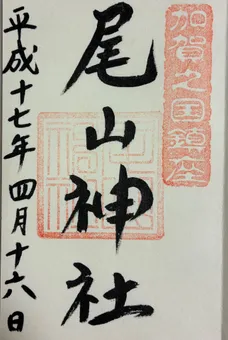 加賀之国鎮座
尾山神社
平成十七年四月十六日